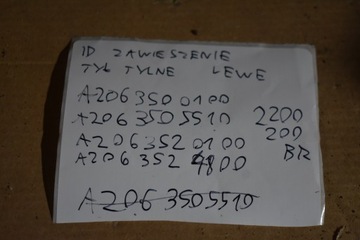 ID ZAWIESZENIE
TYŁ TYLNE LEWE
A206 350 0100
A206 350 5510 2200
A206 352 0100 200
A206 352 4800 BR
A206 350 5510